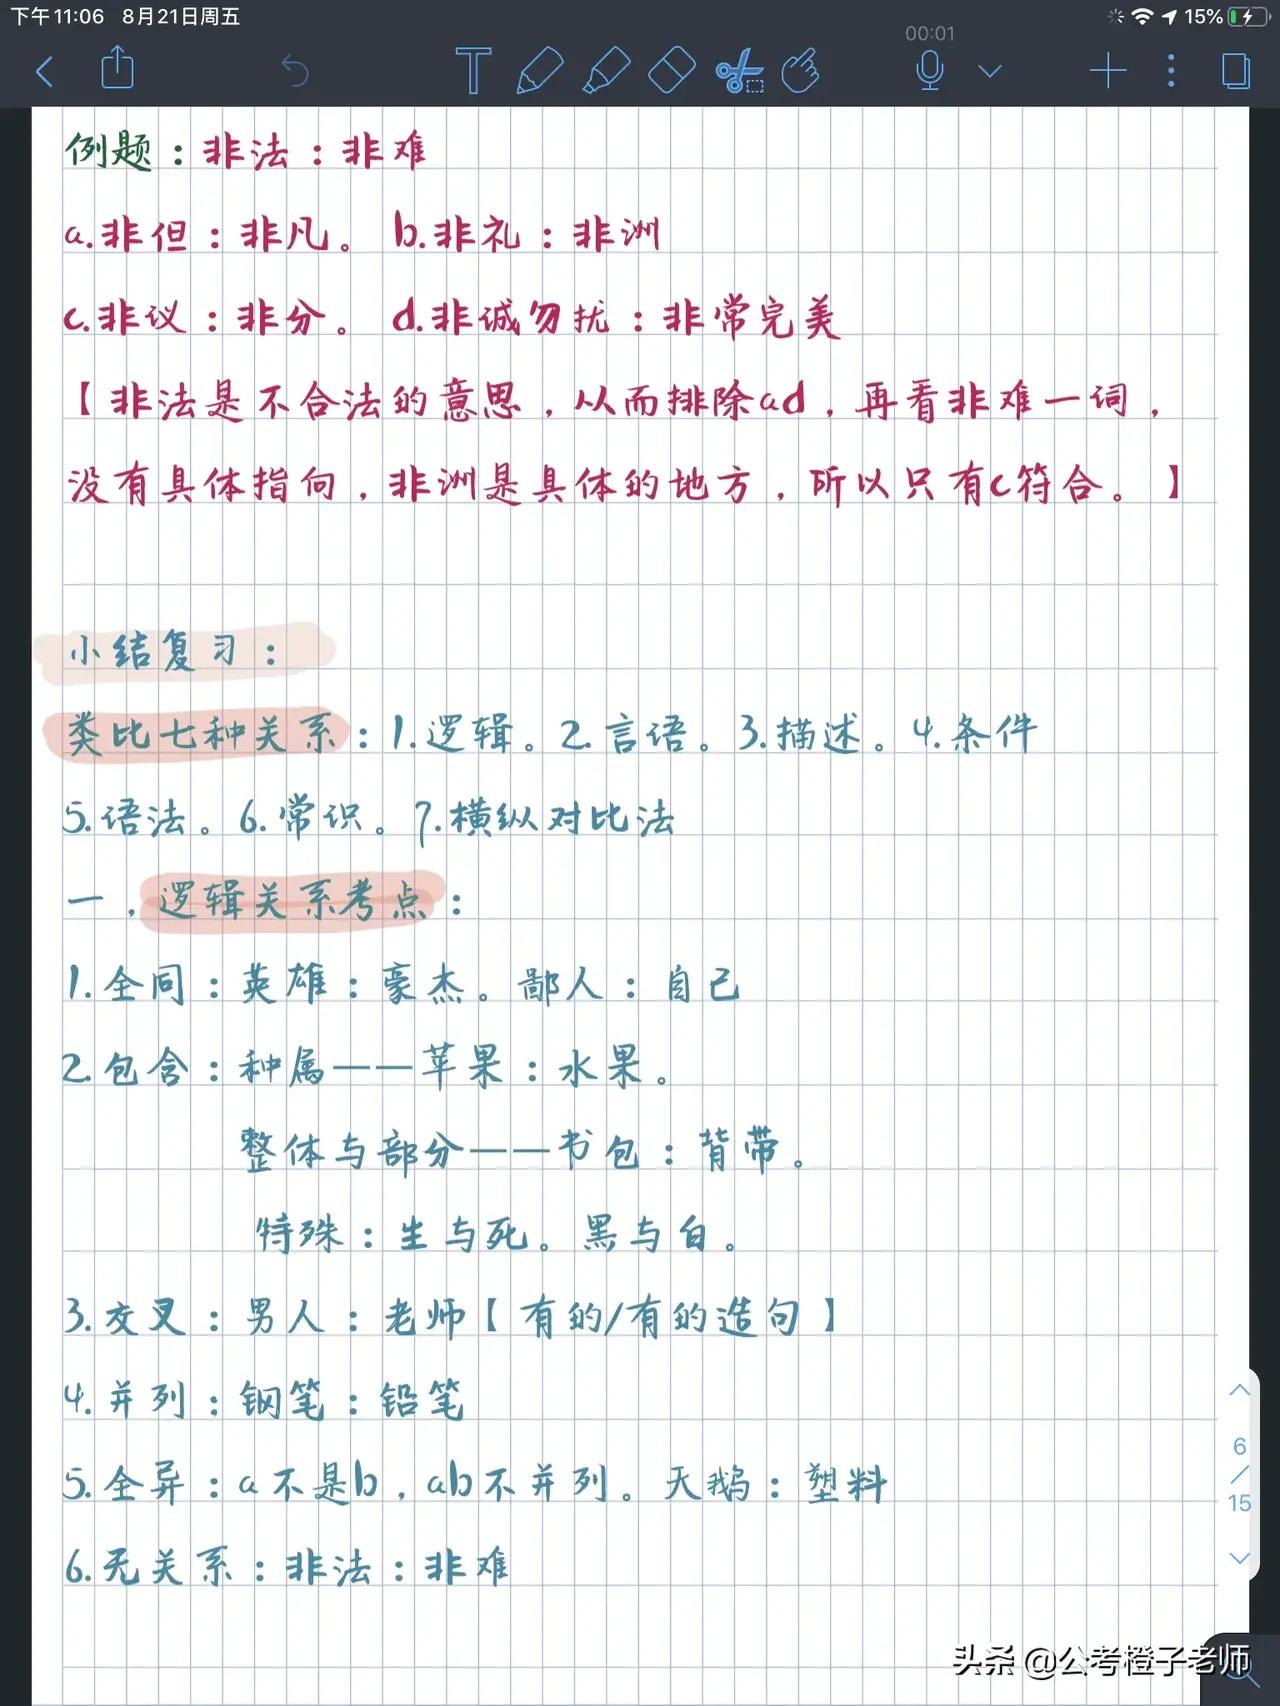 下午11:06 8月21日周五
15%
00:01
例题：非法：非难
a.非但：非凡。 b.非礼：非洲
c.非议：非分。 d.非诚勿扰：非常完美
【非法是不合法的意思，从而排除ad，再看非难一词，
没有具体指向，非洲是具体的地方，所以只有c符合。】
小结复习：
类比七种关系：1.逻辑。2.言语。3.描述。4.条件
5.语法。6.常识。7.横纵对比法
一，逻辑关系考点：
1.全同：英雄：豪杰。鄙人：自己
2.包含：种属——苹果：水果。
整体与部分——书包：背带。
特殊：生与死。黑与白。
3.交叉：男人：老师【有的/有的造句】
4.并列：钢笔：铅笔
5.全异：a不是b，ab不并列。天鹅：塑料
6.无关系：非法：非难
6
/
15
头条 @公考橙子老师